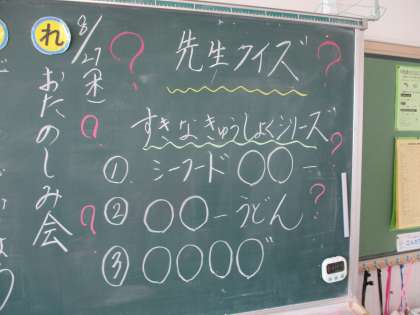 れ
3/27(木)
おたのしみ会
先生クイズ
すきなきゅうしょくシリーズ
① シーフード〇〇ー
② 〇〇ーうどん
③ 〇〇〇〇゛